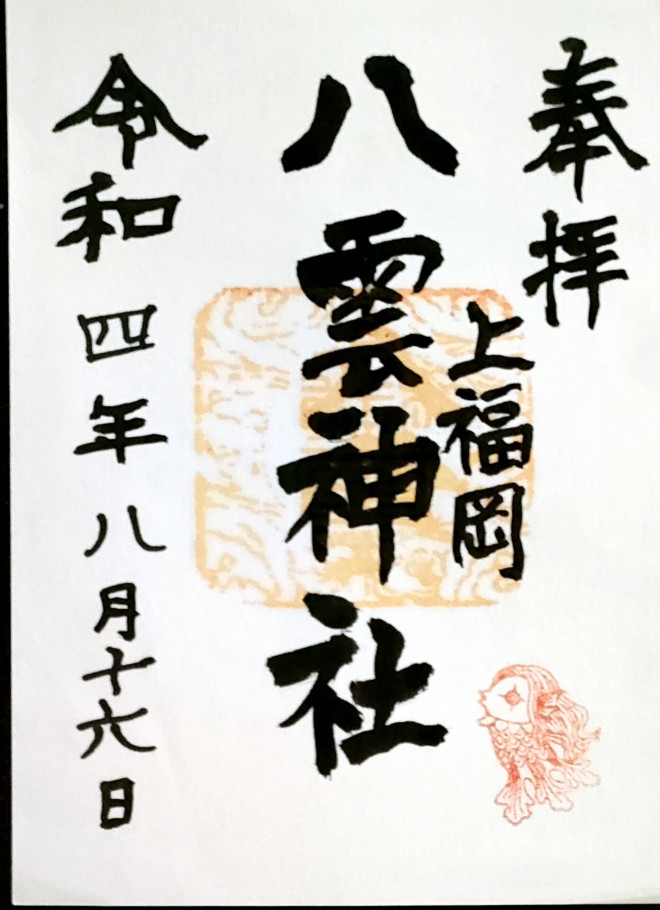 奉拝
上福岡
八雲神社
令和四年八月十六日